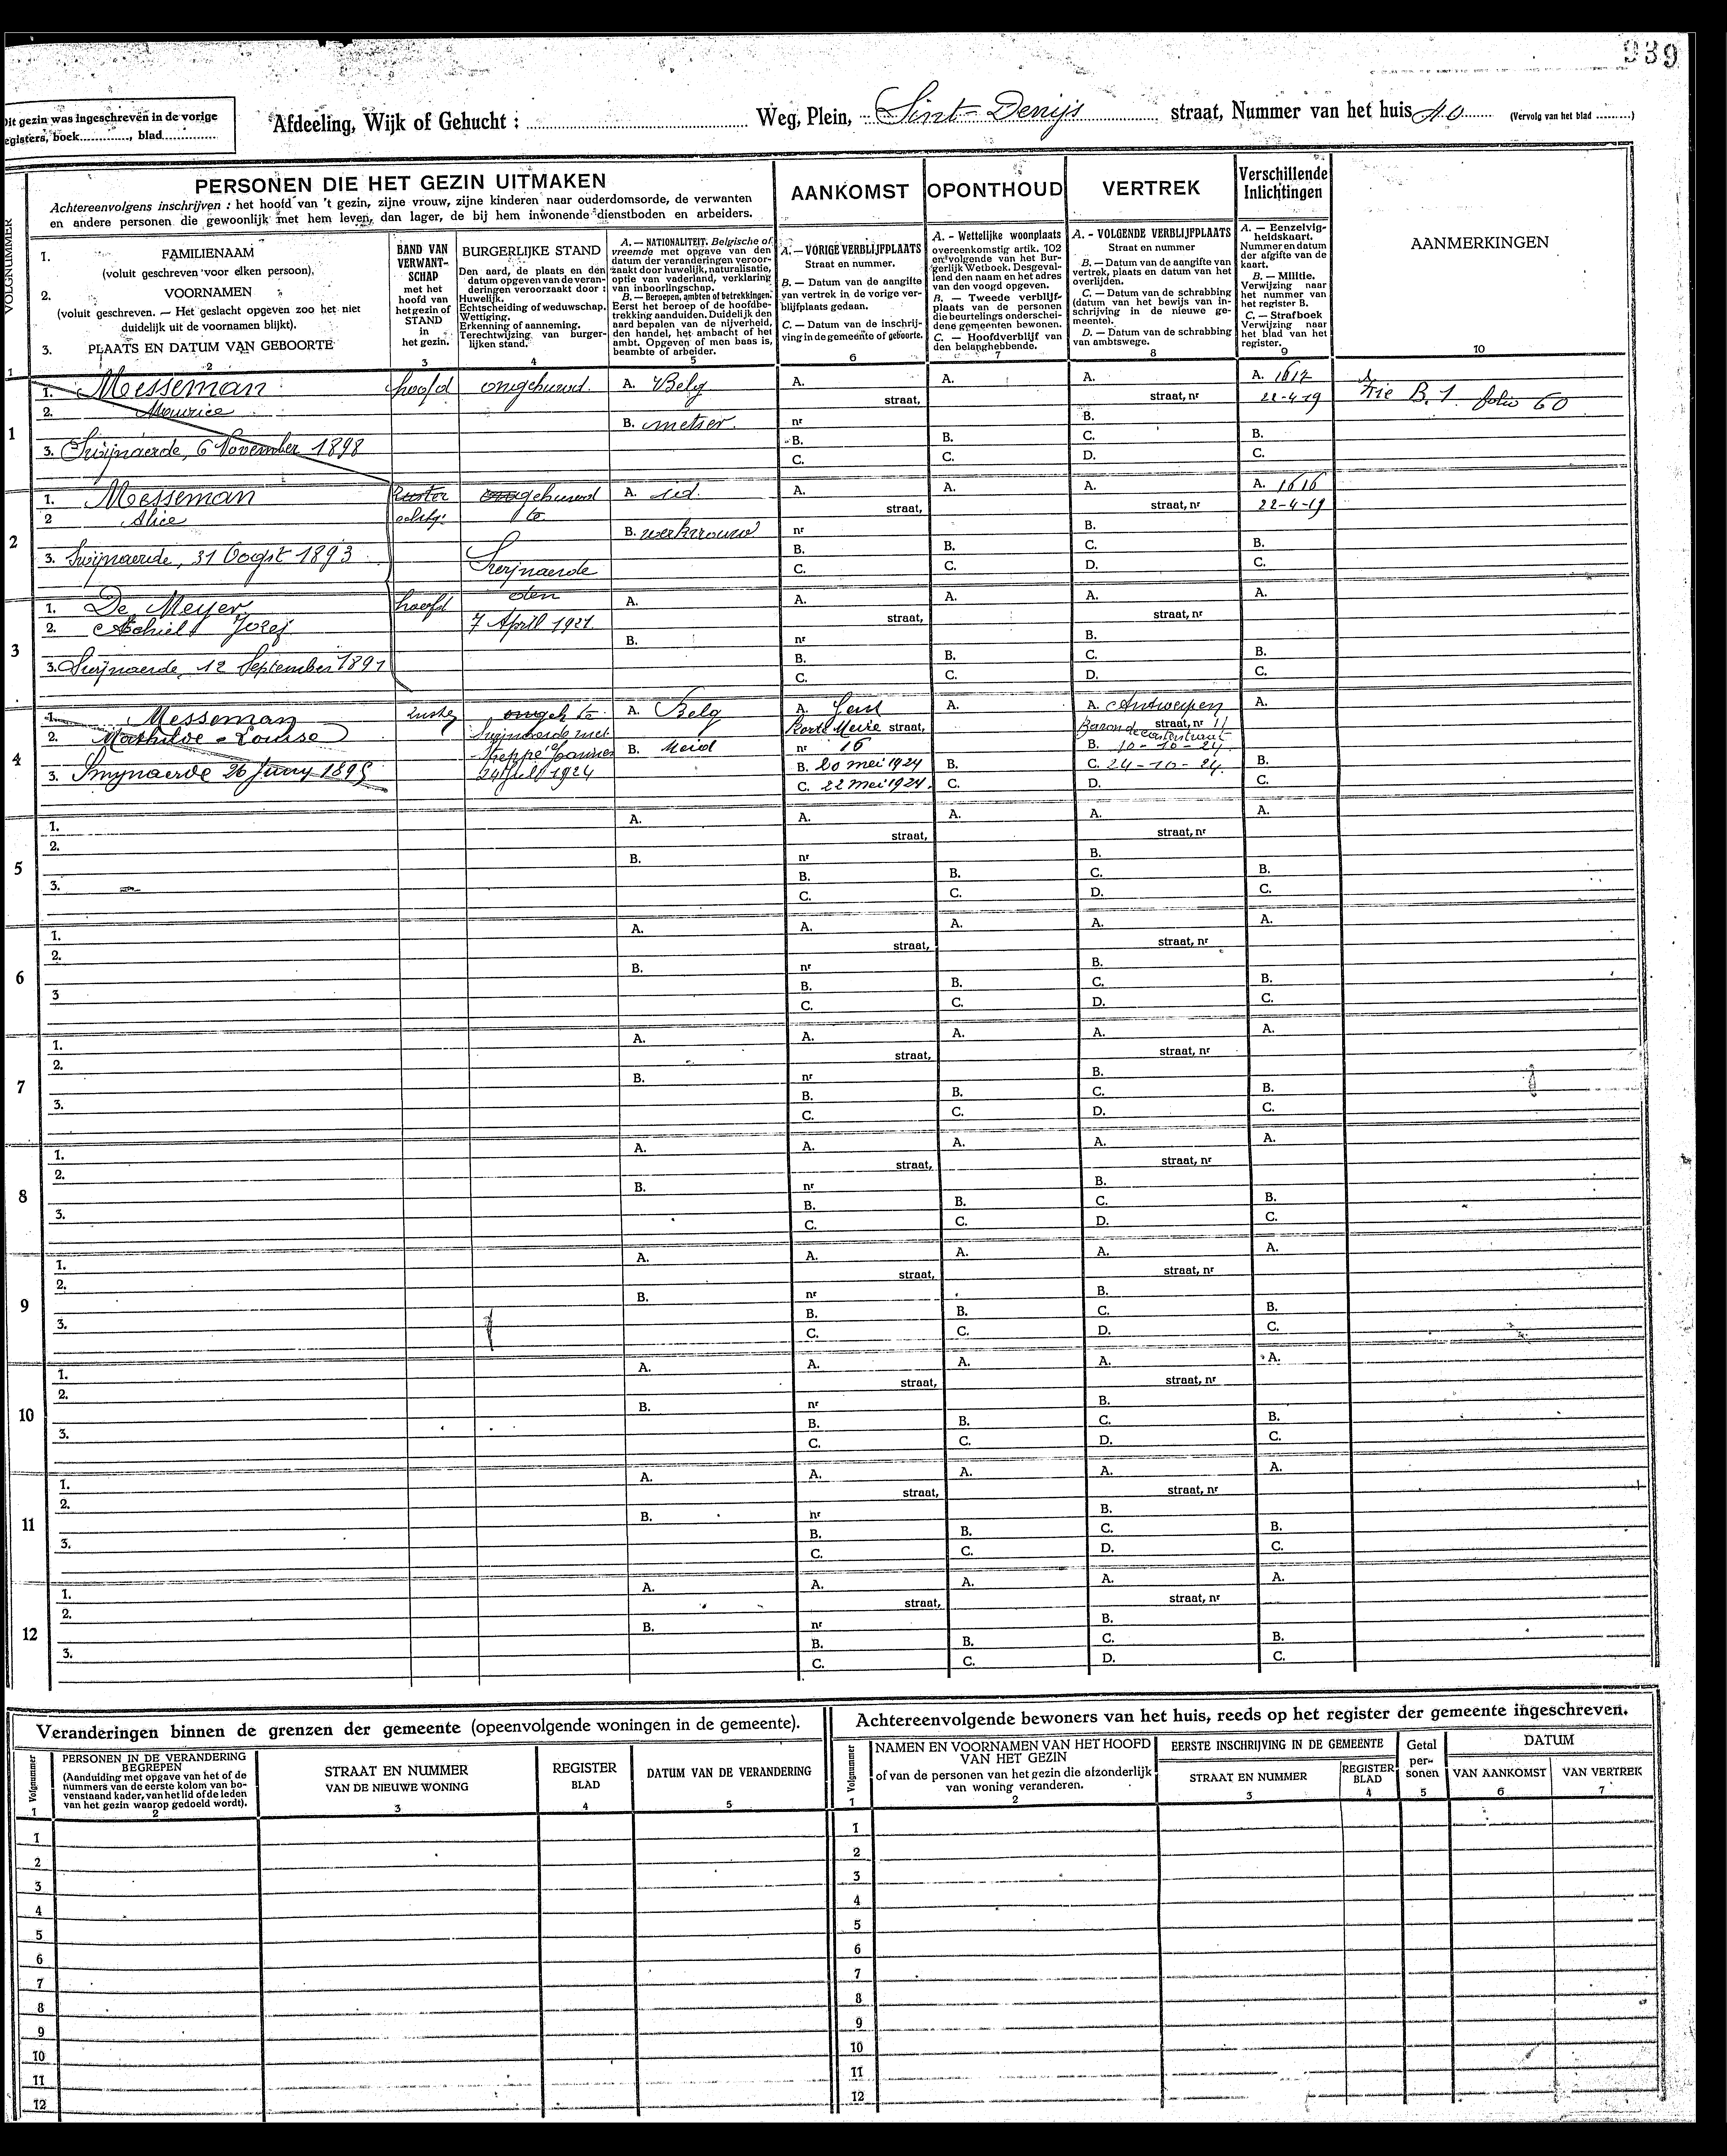 939
Dit gezin was ingeschreven in de vorige
registers, boek............, blad............
Afdeeling, Wijk of Gehucht : Weg, Plein, Sint-Denijs straat, Nummer van het huis 40 (Vervolg van het blad .........)
PERSONEN DIE HET GEZIN UITMAKEN
Achtereenvolgens inschrijven : het hoofd van 't gezin, zijne vrouw, zijne kinderen naar ouderdomsorde, de verwanten
en andere personen die gewoonlijk met hem leven, dan lager, de bij hem inwonende dienstboden en arbeiders.
VOLGNUMMER
1
1. FAMILIENAAM
(voluit geschreven voor elken persoon).
2. VOORNAMEN
(voluit geschreven. — Het geslacht opgeven zoo het niet
duidelijk uit de voornamen blijkt).
3. PLAATS EN DATUM VAN GEBOORTE
2
BAND VAN
VERWANT-
SCHAP
met het
hoofd van
het gezin of
STAND
in
het gezin.
3
BURGERLIJKE STAND
Den aard, de plaats en den
datum opgeven de veran-
deringen veroorzaakt door :
Huwelijk.
Echtscheiding of weduwschap.
Wettiging.
Erkenning of aanneming.
Terechtwijzing van burger-
lijken stand.
4
A. — NATIONALITEIT. Belgische of
vreemde met opgave van den
datum der veranderingen veroor-
zaakt door huwelijk, naturalisatie,
optie van vaderland, verklaring
van inboorlingschap.
B. — Beroepen, ambten of betrekkingen.
Eerst het beroep of de hoofdbe-
trekking aanduiden. Duidelijk den
aard bepalen van de nijverheid,
den handel, het ambacht of het
ambt. Opgeven of men baas is,
beambte of arbeider.
5
AANKOMST
A. — VORIGE VERBLIJFPLAATS
Straat en nummer.
B. — Datum van de aangifte
van vertrek in de vorige ver-
blijfplaats gedaan.
C. — Datum van de inschrij-
ving in de gemeente of geboorte.
6
OPONTHOUD
A. - Wettelijke woonplaats
overeenkomstig artik. 102
en volgende van het Bur-
gerlijk Wetboek. Desgeval-
lend den naam en het adres
van den voogd opgeven.
B. — Tweede verblijf-
plaats van de personen
die beurtelings onderschei-
dene gemeenten bewonen.
C. — Hoofdverblijf van
den belanghebbende.
7
VERTREK
A. - VOLGENDE VERBLIJFPLAATS
Straat en nummer
B. — Datum van de aangifte van
vertrek, plaats en datum van het
overlijden.
C. — Datum van de schrabbing
(datum van het bewijs van in-
schrijving in de nieuwe ge-
meente).
D. — Datum van de schrabbing
van ambtswege.
8
Verschillende
Inlichtingen
A. — Eenzelvig-
heidskaart.
Nummer en datum
der afgifte van de
kaart.
B. — Militie.
Verwijzing naar
het nummer van
het register B.
C. — Strafboek
Verwijzing naar
het blad van het
register.
9
AANMERKINGEN
10
1
1. Messeman hoofd ongehuwd A. Belg A. A. A. A. 1617 Zie B. 1 folio 60
2. Maurice straat, straat, nr 22-4-19
B. metser nr B.
3. Swijnaerde, 6 November 1898 B. B. C. B.
C. C. D. C.
2
1. Messeman Zuster ongehuwd A. id. A. A. A. A. 1616
2 Alice echtg. te straat, straat, nr 22-4-19
B. werkvrouw nr B.
3. Swijnaerde, 31 Oogst 1893 Swijnaerde B. B. C. B.
C. C. D. C.
3
1. De Meyer hoofd den A. A. A. A. A.
2. Achiel Jozef 7 April 1921 straat, straat, nr
B. nr B.
3. Swijnaerde, 12 September 1891 B. B. C. B.
C. C. D. C.
4
1. Messeman zuster ongeh te A. Belg A. Gent A. A. Antwerpen A.
2. Mathilde - Louise Swijnaerde met Korte Meire straat, straat, nr 11
B. Meid nr 16 B. 10-10-24
3. Swijnaerde 26 Juny 1895 24 Juli 1924 B. 20 mei 1924 B. C. 24-10-24 B.
C. 22 mei 1924 C. D. C.
5
1. A. A. A. A. A.
2. straat, straat, nr
B. nr B.
3. B. B. C. B.
C. C. D. C.
6
1. A. A. A. A. A.
2. straat, straat, nr
B. nr B.
3 B. B. C. B.
C. C. D. C.
7
1. A. A. A. A. A.
2. straat, straat, nr
B. nr B.
3. B. B. C. B.
C. C. D. C.
8
1. A. A. A. A. A.
2. straat, straat, nr
B. nr B.
3. B. B. C. B.
C. C. D. C.
9
1. A. A. A. A. A.
2. straat, straat, nr
B. nr B.
3. B. B. C. B.
C. C. D. C.
10
1. A. A. A. A. A.
2. straat, straat, nr
B. nr B.
3. B. B. C. B.
C. C. D. C.
11
1. A. A. A. A. A.
2. straat, straat, nr
B. nr B.
3. B. B. C. B.
C. C. D. C.
12
1. A. A. A. A. A.
2. straat, straat, nr
B. nr B.
3. B. B. C. B.
C. C. D. C.
Veranderingen binnen de grenzen der gemeente (opeenvolgende woningen in de gemeente).
Volgnummer
1
PERSONEN IN DE VERANDERING
BEGREPEN
(Aanduiding met opgave van het of de
nummers van de eerste kolom van bo-
venstaand kader, van het lid of de leden
van het gezin waarop gedoeld wordt).
2
STRAAT EN NUMMER
VAN DE NIEUWE WONING
3
REGISTER
BLAD
4
DATUM VAN DE VERANDERING
5
1
2
3
4
5
6
7
8
9
10
11
12
Achtereenvolgende bewoners van het huis, reeds op het register der gemeente ingeschreven.
Volgnummer
1
NAMEN EN VOORNAMEN VAN HET HOOFD
VAN HET GEZIN
of van de personen van het gezin die afzonderlijk
van woning veranderen.
2
EERSTE INSCHRIJVING IN DE GEMEENTE
STRAAT EN NUMMER
3
REGISTER
BLAD
4
Getal
per-
sonen
5
DATUM
VAN AANKOMST
6
VAN VERTREK
7
1
2
3
4
5
6
7
8
9
10
11
12